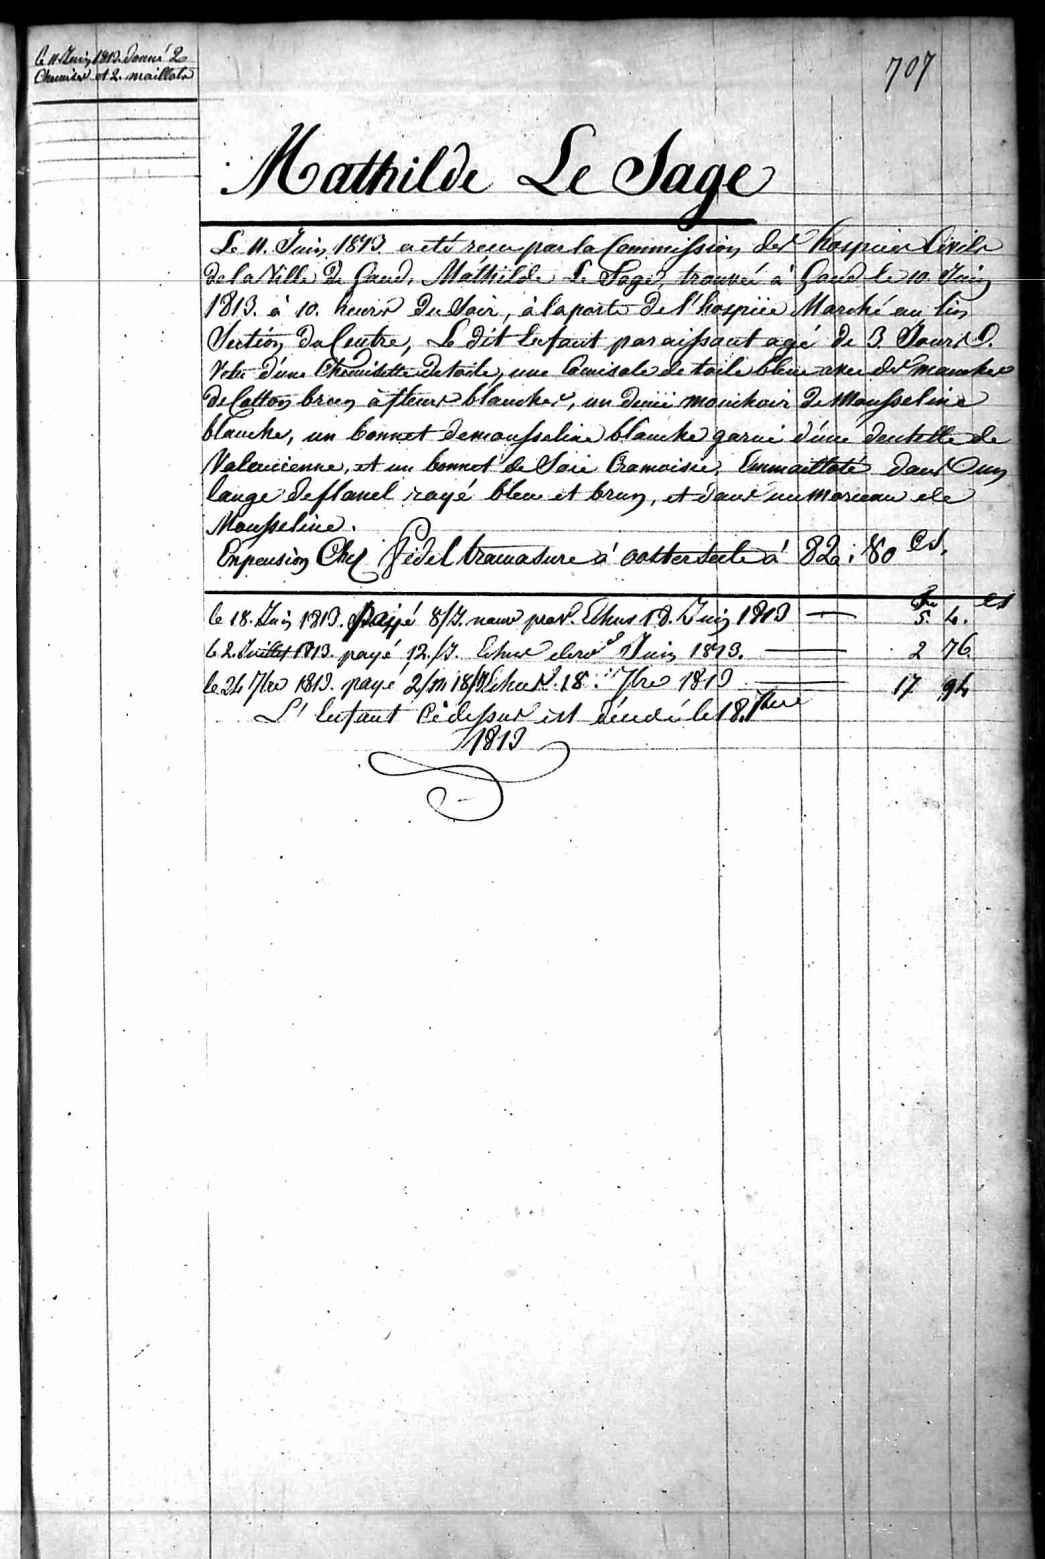 le 11. Juin 1813. donné 2
Chemises et 2. maillots
707
Mathilde Le Sage
Le 11. Juin 1813. a eté recu par la Commission des hospices Civils
de la Ville de Gand, Mathilde Le Sage, trouvée à Gand le 10. Juin
1813. à 10. heures du Soir, à la porte de l'hospice Marché au lin
Section du Centre, Le dit Enfant paraissant agé de 3. Jours.
Vetu d'une Chemisette de toile, une Camisole de toile bleue avec des manches
de Cotton brun à fleurs blanches, un demi mouchoir de Mousseline
blanche, un bonnet de mousseline blanche garni d'une dentelle de
Valencienne, et un bonnet de Soie Cramoisie, Emmailloté dans un
lange de flanel rayé bleu et brun, et dans un morceau de
Mousseline.
En pension Chez Fidel tramasure à oosterseele à 82: 80 Cs.
Fr cs
le 18. Juin 1813. payé 8/J. Echus 18. Juin 1813 — 5. 4.
le 2. Juillet 1813. payé 12./J. Echus Juin 1813. — 2 76.
le 24 7bre 1813. payé 2/m 18/J Echus 18. 7bre 1813 — 17 94
L'Enfant Cidessus est décédé le 18. 7bre
1813